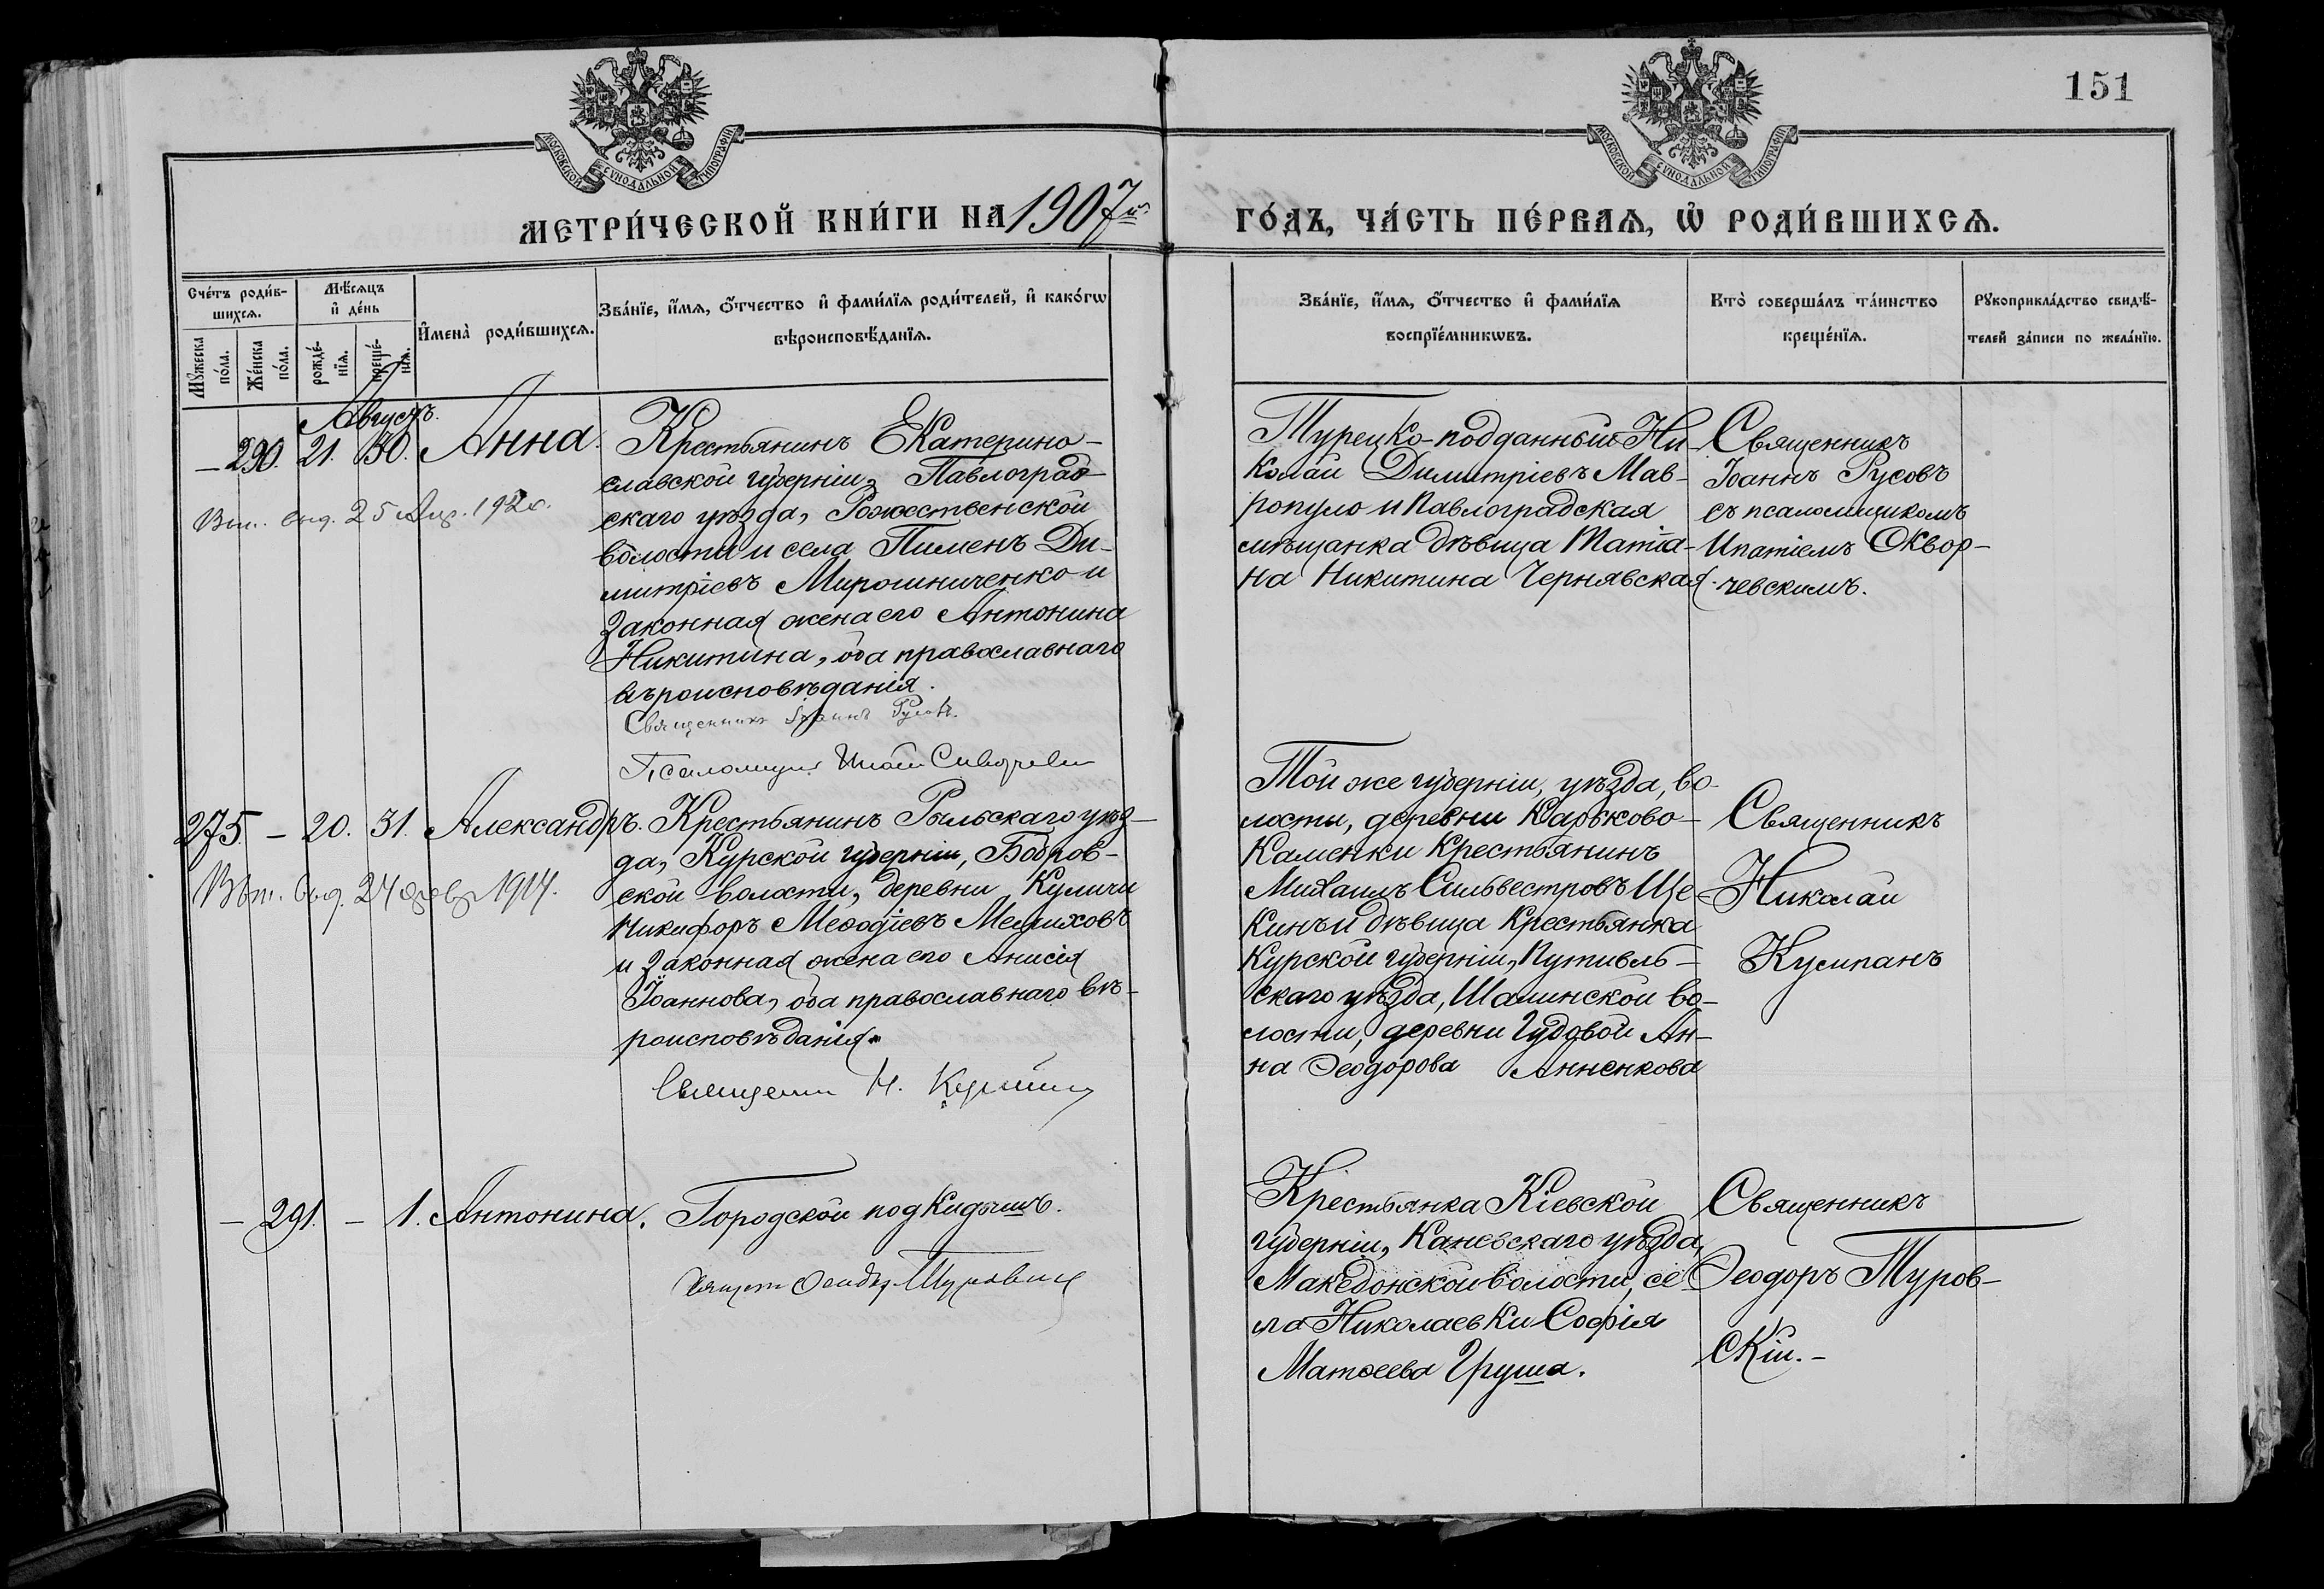 151
МОСКОВСКОЙ СѴНОДАЛЬНОЙ ТИПОГРАФІИ
МОСКОВСКОЙ СѴНОДАЛЬНОЙ ТИПОГРАФІИ
МЕТРИ́ЧЕСКОЙ КНИ́ГИ НА 1907й
ГО́ДЪ, ЧА́СТЬ ПЕ́РВАѦ, Ѡ҆ РОДИ́ВШИХСѦ.
Сче́тъ роди́в-
шихсѧ.
Мꙋжеска по́ла.
Же́нска по́ла.
Мѣ́сѧцъ
и҆ де́нь
рожде́-
нїѧ.
креще́-
нїѧ.
И҆мена̀ роди́вшихсѧ.
Зва́нїе, и҆́мѧ, ѻ҆́тчество и҆ фами́лїѧ роди́телей, и҆ како́гѡ
вѣроисповѣ́данїѧ.
Зва́нїе, и҆́мѧ, ѻ҆́тчество и҆ фами́лїѧ
воспрїе́мникѡвъ.
Кто̀ соверша́лъ та́инство
креще́нїѧ.
Рꙋкоприкла́дство свидѣ́-
телей за́писи по жела́нїю.
Августъ.
– 290. 21. 30. Анна.
Крестьянинъ Екатерино-
славской губерніи, Павлоград-
скаго уѣзда, Рожественской
волости и села Пименъ Ди-
митріевъ Мирошниченко и
законная жена его Антонина
Никитина, оба православнаго
вѣроисповѣданія.
Священникъ Іоаннъ Русовъ.
Псаломщикъ
выд. 25 Апр. 192
Турецко-подданный Ни-
колай Димитріевъ Мав-
ропуло и Павлоградская
мѣщанка дѣвица Татіа-
на Никитина Чернявская.
Священникъ
Іоаннъ Русовъ
съ псаломщикомъ
Ипатіемъ Сквор-
чевскимъ.
275. – 20. 31. Александръ.
Крестьянинъ Рыльскаго уѣз-
да, Курской губерніи, Бобров-
ской волости, деревни Куличи
Никифоръ Меѳодіевъ Мелиховъ
и законная жена его Анисія
Іоаннова, оба православнаго вѣ-
роисповѣданія.
Священникъ Н. Кулпанъ
выд. 24 февр 1914.
Той же губерніи, уѣзда, во-
лости, деревни Карьково-
Каменки крестьянинъ
Михаилъ Сильвестровъ Ще-
кинъ и дѣвица крестьянка
Курской губерніи, Путивль-
скаго уѣзда, Шалинской во-
лости, деревни Гудовой Ан-
на Ѳеодорова Анненкова
Священникъ
Николай
Кулпанъ
– 291. – 1. Антонина.
Городской подкидышъ.
Крестьянка Кіевской
губерніи, Каневскаго уѣзда,
Македонской волости, се-
ла Николаевки Софія
Матѳеева Груша.
Священникъ
Ѳеодоръ Туров-
скій.-